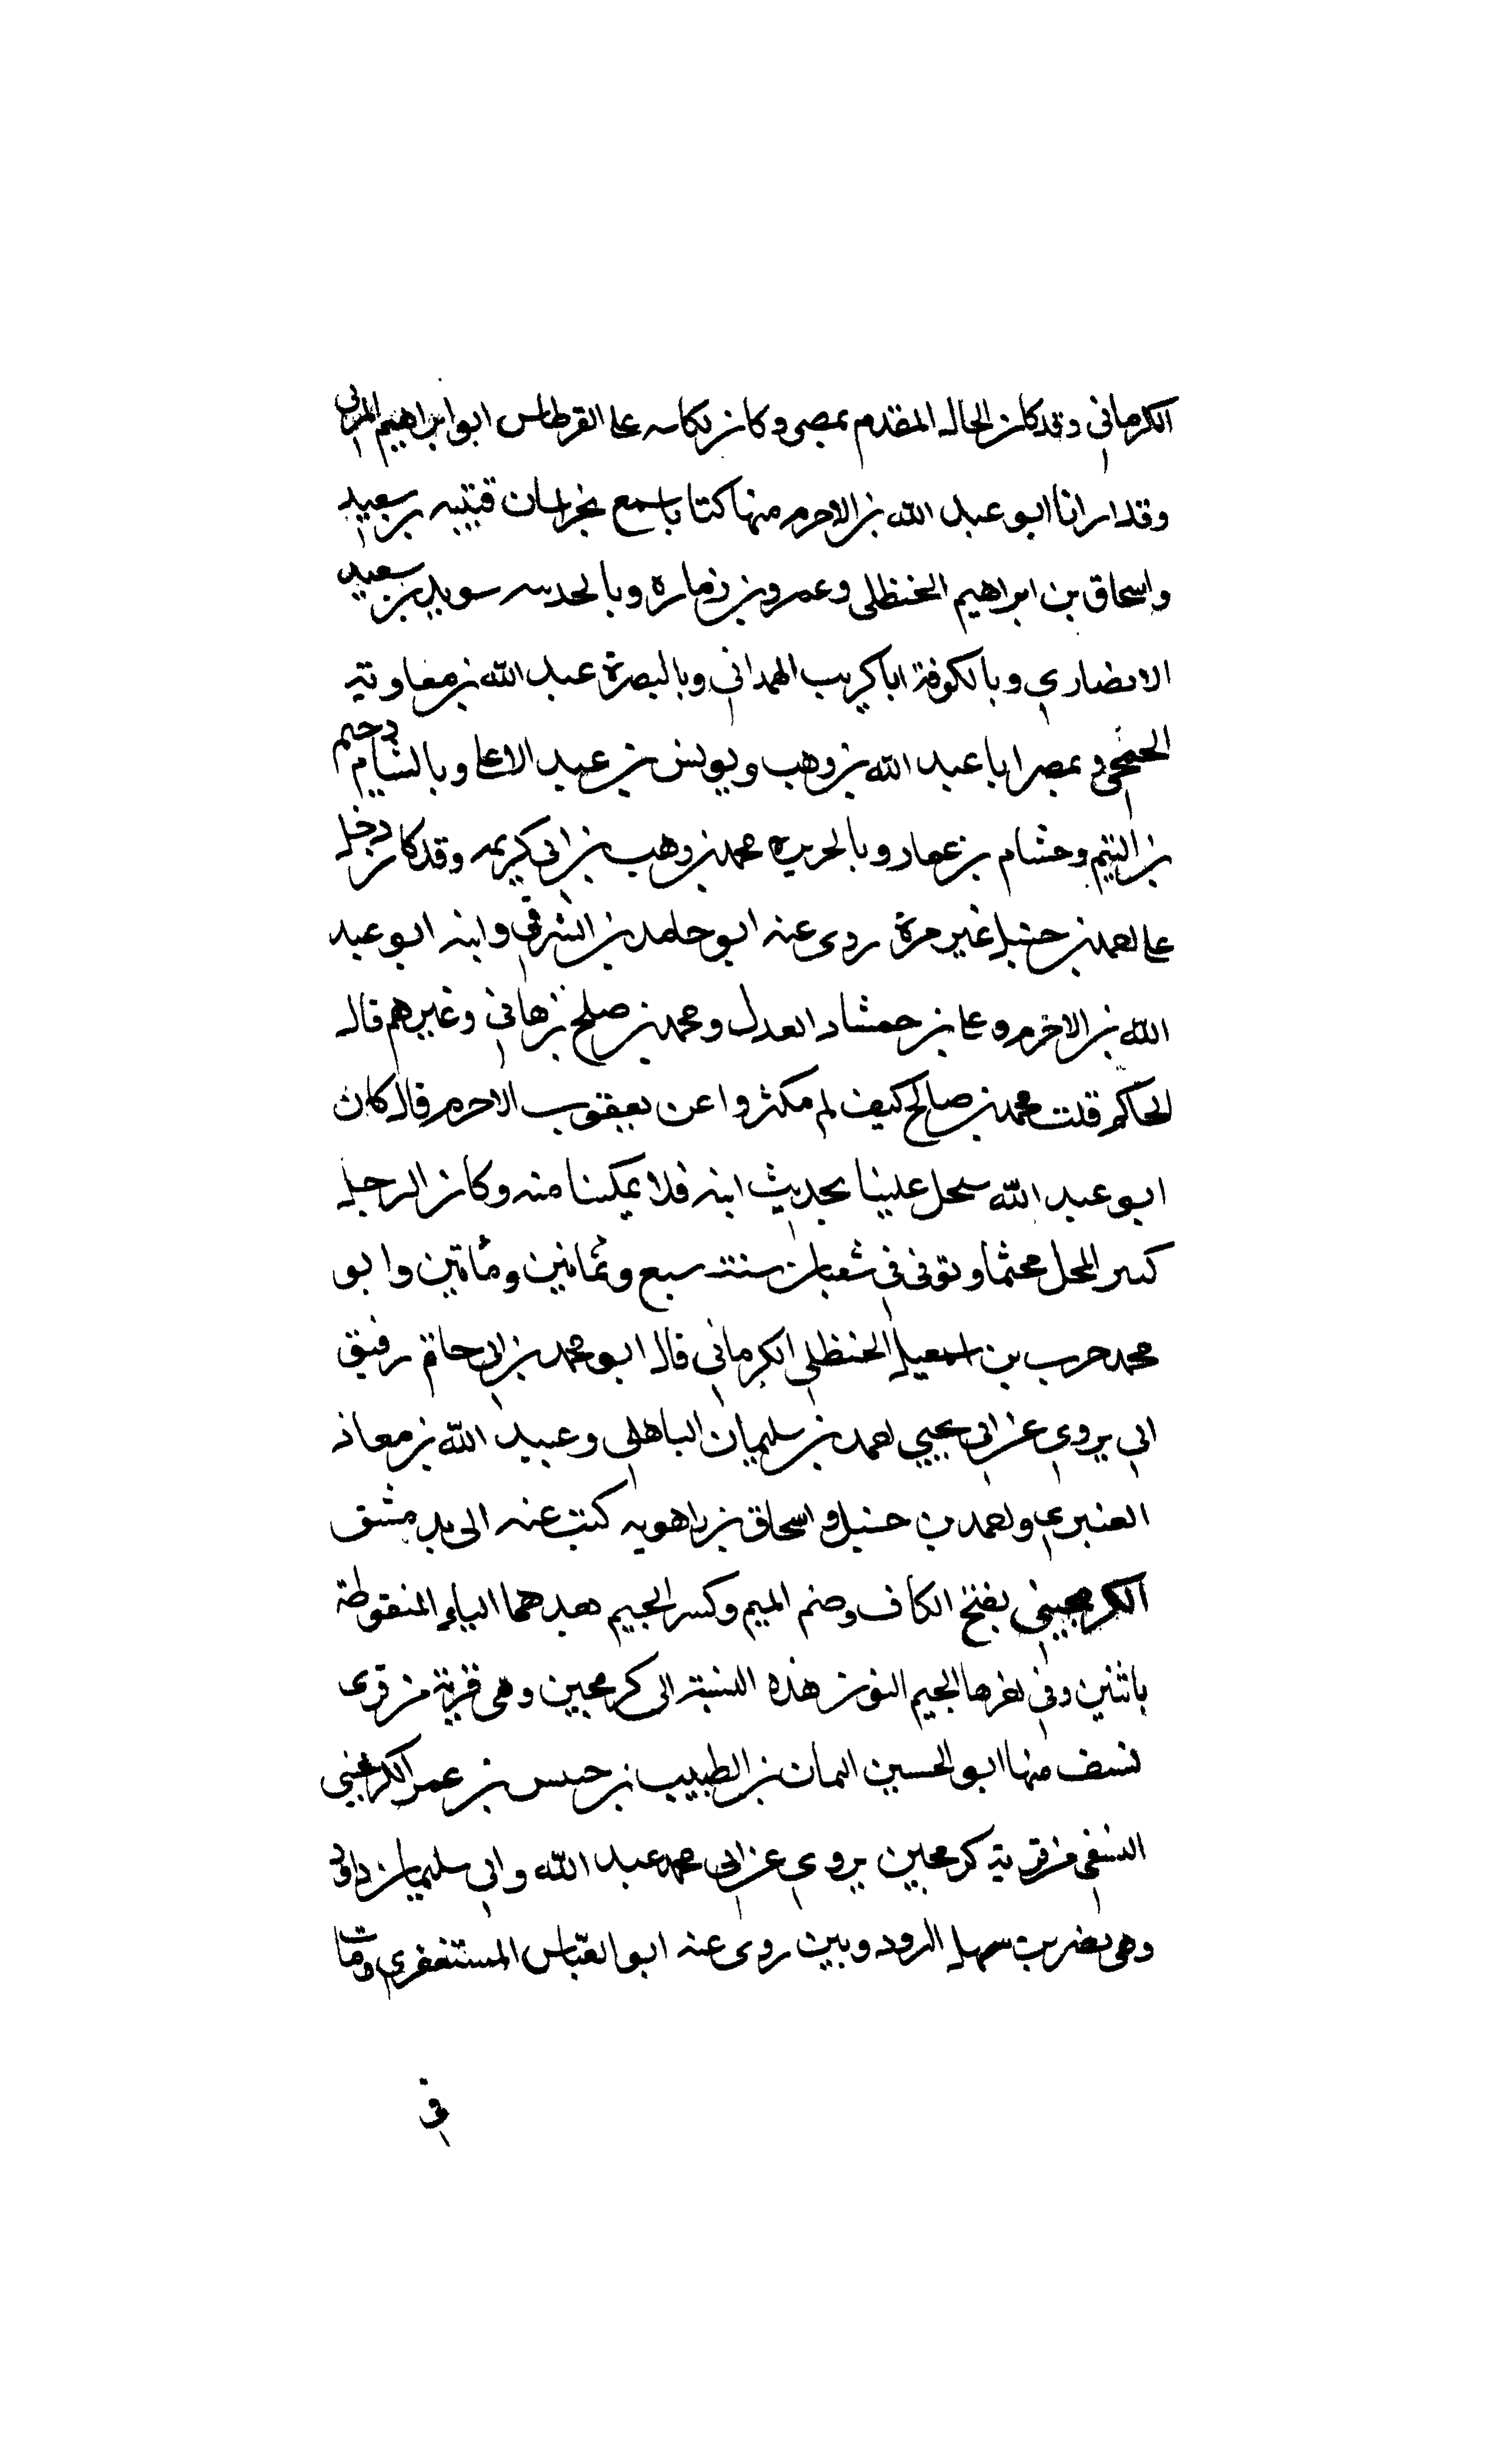 الكرماني وقد كان الحال المقدم بمصر وكان بكاسه على القرطاس ابو ابراهيم المزني
وقد ارانا ابو عبد الله بن الاخرم منها كتابا سمع بخراسان قتيبه بن سعيد
واسحاق بن ابراهيم الحنظلي وعمرو بن زماره وبالحدسه سويد بن سعيد
الانصاري وبالكوفة ابا كريب الهمداني وبالبصرة عبد الله بن معاوية
الجمحي وبمصر ابا عبد الله بن وهب ويونس بن عبد الاعلى وبالشام دحيم
بن اليتيم وهشام بن عمار وبالحريره محمد بن وهب بن ابي كريمه وقد كان دخل
على احمد بن حنبل غير مرة روى عنه ابو حامد بن الشرقي وابنه ابو عبد
الله بن الاخرم وعلى بن حمشاد العدل ومحمد بن صلح بن هاني وغيرهم قال
الحاكم قلت محمد بن صالح كيف لم مكثروا عن يعقوب الاحرم قال كان
ابو عبد الله سحل علينا بحديث ابنه فلا يمكننا منه وكان الرجل
كبير المحل محتشما وتوفى في شعبان سنة سبع وثمانين ومأتين وابو
محمد حرب بن اسمعيل الحنظلي الكرماني قال ابو محمد بن ابي حاتم رفيق
ابي يروي عن ابي يحيي احمد بن سليمان الباهلي وعبيد الله بن معاذ
العنبري واحمد بن حنبل واسحاق بن راهويه كتب عنه ابي بدمشق
الكرمجيني بفتح الكاف وضم الميم وكسر الجيم بعدهما الياء المنقوطة
باثنين وفي اخرها الجيم النون هذه النسبة الى كرمجين وهي قرية من قرى
نسف منها ابو الحسين اليمان بن الطبيب بن حبيس بن عمر الكرمجيني
النسفي من قرية كرمجين يروي عن ابي محمد عبد الله وابي سليمان داود
وهي نضر بن سهل الرود وبين روى عنه ابو العباس المستغفري ومات
في